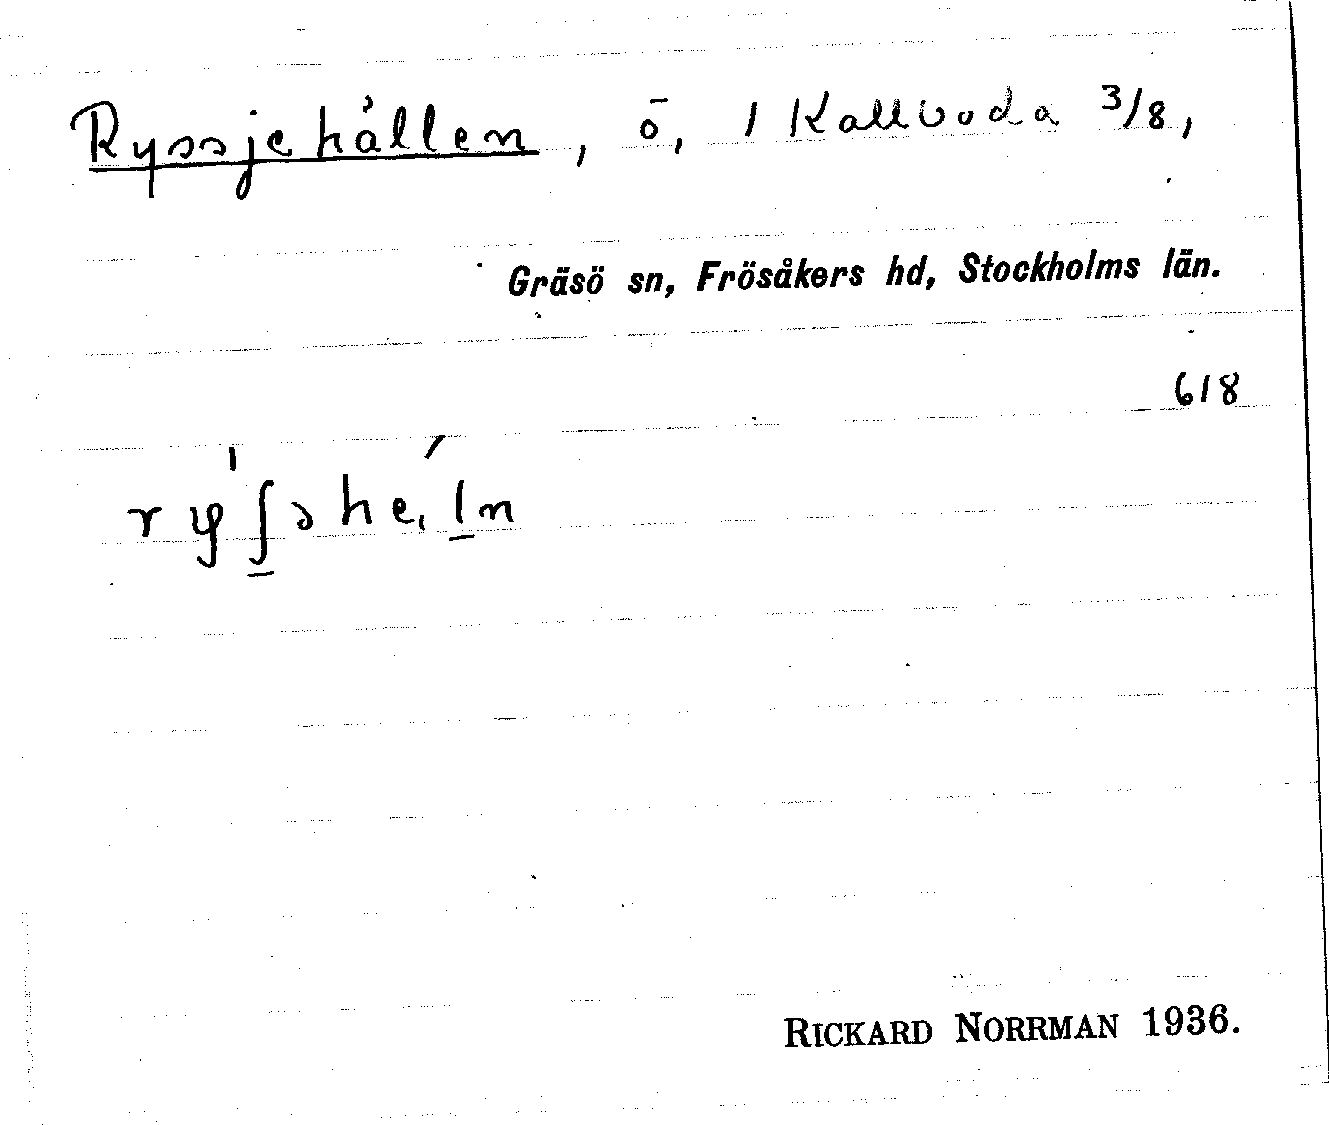 Ryssjehällen, ö, / Kallboda 3/8,
Gräsö sn, Frösåkers hd, Stockholms län.
618
RICKARD NORRMAN 1936.